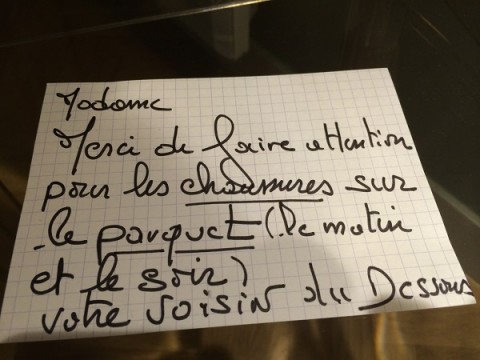 Madame
Merci de faire attention
pour les chaussures sur
le parquet (le matin
et le soir)
votre voisin du Dessous